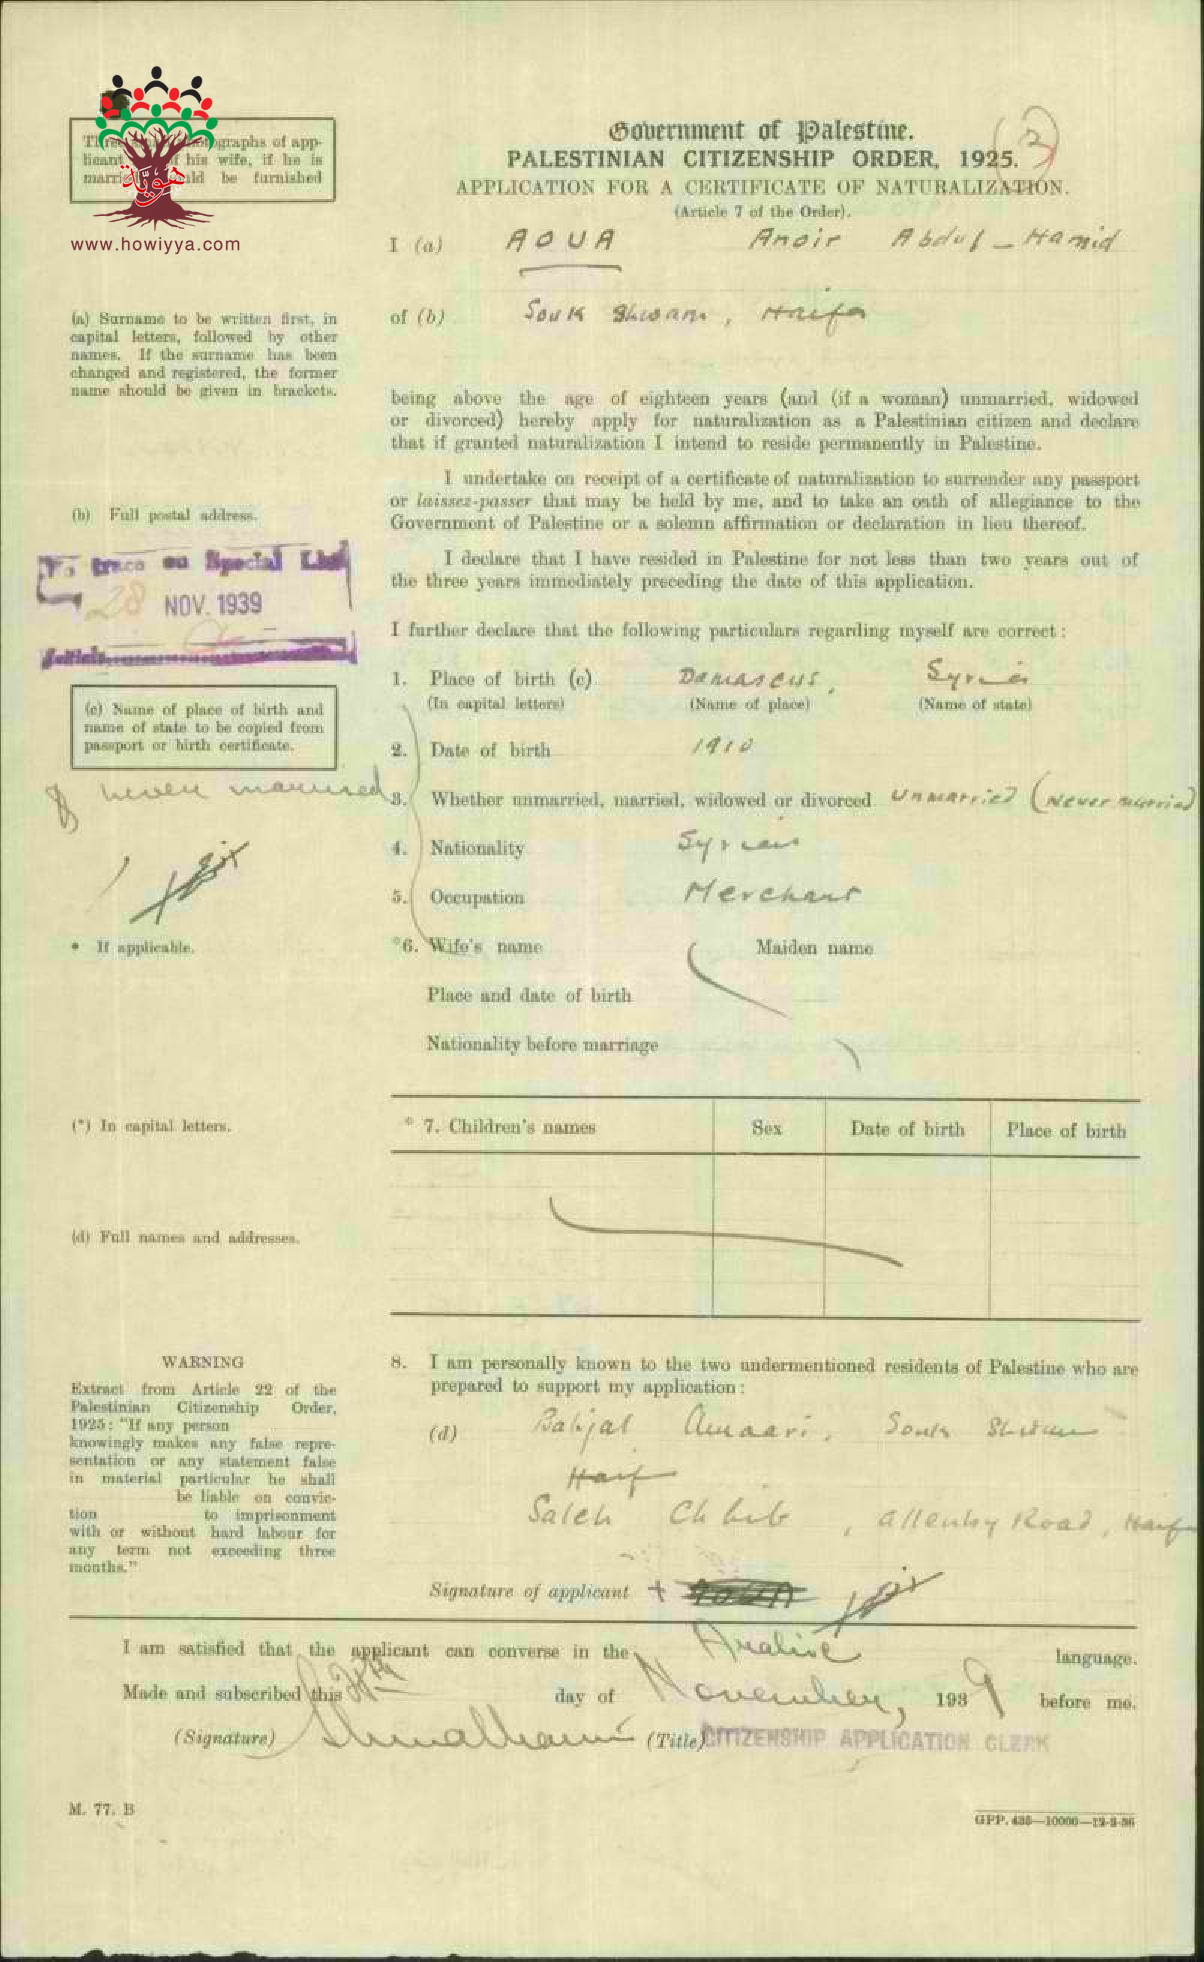 Government of Palestine.
PALESTINIAN CITIZENSHIP ORDER, 1925.
APPLICATION FOR A CERTIFICATE OF NATURALIZATION.
(Article 7 of the Order).
www.howiyya.com
I (a) AOUA Anoir Abdul-Hamid
(a) Surname to be written first, in
capital letters, followed by other
names. If the surname has been
changed and registered, the former
name should be given in brackets.
of (b) Souk Shwam, Haifa
being above the age of eighteen years (and (if a woman) unmarried, widowed
or divorced) hereby apply for naturalization as a Palestinian citizen and declare
that if granted naturalization I intend to reside permanently in Palestine.
I undertake on receipt of a certificate of naturalization to surrender any passport
or laissez-passer that may be held by me, and to take an oath of allegiance to the
Government of Palestine or a solemn affirmation or declaration in lieu thereof.
(b) Full postal address.
I declare that I have resided in Palestine for not less than two years out of
the three years immediately preceding the date of this application.
To trace on Special List
28 NOV. 1939
I further declare that the following particulars regarding myself are correct:
1. Place of birth (c) Damascus, Syria
(In capital letters) (Name of place) (Name of state)
(c) Name of place of birth and
name of state to be copied from
passport or birth certificate.
2. Date of birth 1910
never married
3. Whether unmarried, married, widowed or divorced Unmarried (Never married)
4. Nationality Syrian
5. Occupation Merchant
* If applicable.
*6. Wife's name Maiden name
Place and date of birth
Nationality before marriage
(*) In capital letters.
* 7. Children's names Sex Date of birth Place of birth
(d) Full names and addresses.
WARNING
Extract from Article 22 of the
Palestinian Citizenship Order,
1925: "If any person
knowingly makes any false repre-
sentation or any statement false
in material particular he shall
be liable on convic-
tion to imprisonment
with or without hard labour for
any term not exceeding three
months."
8. I am personally known to the two undermentioned residents of Palestine who are
prepared to support my application:
(d) Souk Shwam
Haif
Saleh , Allenby Road, Haifa
Signature of applicant
I am satisfied that the applicant can converse in the Arabic language.
Made and subscribed this day of November, 1939 before me.
(Signature) (Title) CITIZENSHIP APPLICATION CLERK
M. 77. B
GPP. 435—10000—12-3-36